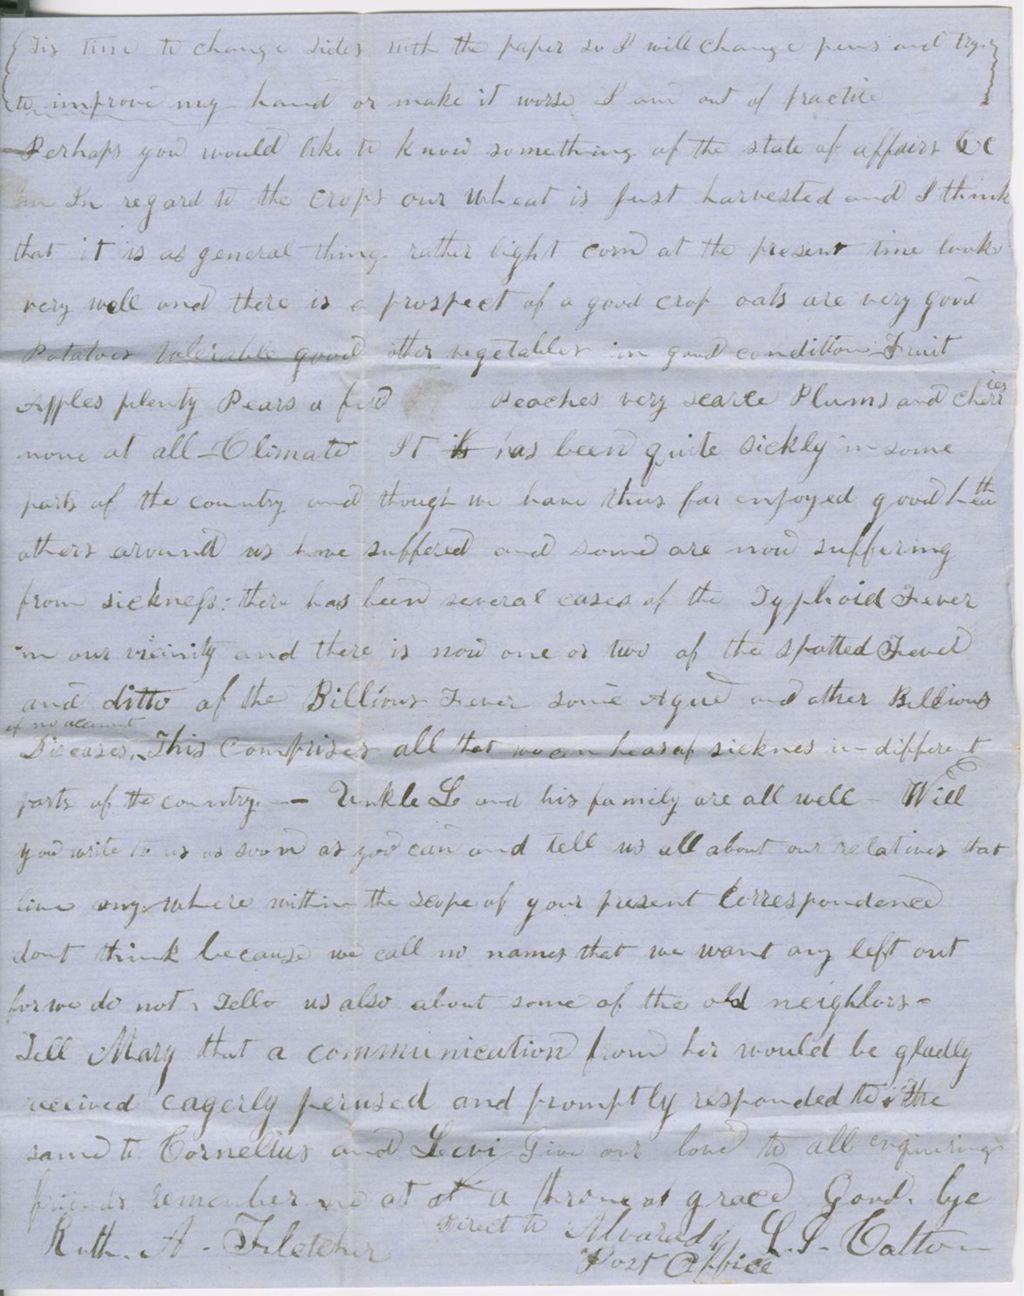 Tis time to change sides with the paper so I will change pens and try
to improve my hand or make it worse I am out of practice
Perhaps you would like to know something of the state of affairs &c
In regard to the crops our wheat is just harvested and I think
that it is as general thing rather light corn at the present time looks
very well and there is a prospect of a good crop oats are very good
Potatoes tolerable good other vegetables in good condition Fruit
Apples plenty Pears a few Peaches very scarce Plums and cherries
none at all - Climate It is has been quite sickly in some
parts of the country and though we have thus far enjoyed good health
others around us have suffered and some are now suffering
from sickness: there has been several cases of the Typhoid Fever
in our vicinity and there is now one or two of the spotted Fever
and ditto of the Billious Fever some Ague and other Billious
of no account
Diseases, This comprises all that we can hear of sicknes in different
parts of the country. - Unkle L and his family are all well - Will
you write to us as soon as you can and tell us all about our relatives that
live any where within the scope of your present Correspondence
dont think because we call no names that we want any left out
for we do not, Tell us also about some of the old neighbors -
Tell Mary that a communication from her would be gladly
received eagerly perused and promptly responded to, the
same to Cornelius and Levi Give our love to all enquiring
friends remember me at a throne of grace Good. bye
Ruth. A. Fletcher Direct to Alvarado L. S. Catton
Post Office